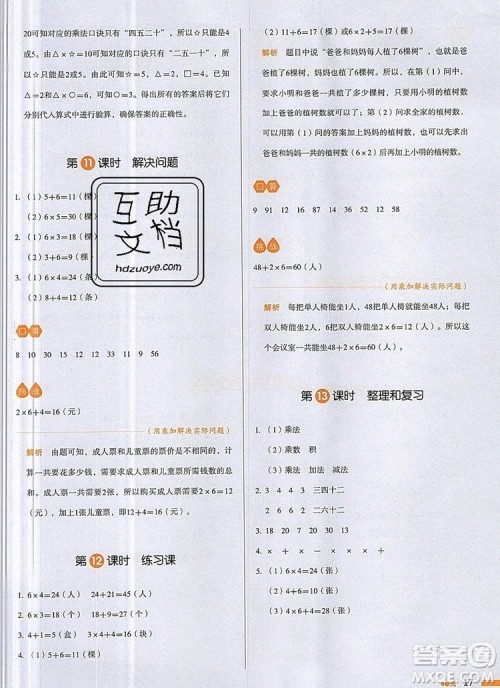 20可知对应的乘法口诀只有“四五二十”，所以☆只可能是4
或5。由△×☆=10可知对应的口诀只有“二五一十”，所以
☆只能是5。所以☆=5，○=4，△=2，□=4。将所有的
○=2也可以得出。将所有符号的答案得出后可以把它们
分别代入算式中进行验算，确保答案的正确性。
第11课时 解决问题
1.（1）5+6=11（棵）
（2）6×5=30（棵）
2.（1）3×6=18（个）
（2）3+6=9（个）
3.（1）6×4=24（条）
（2）8+4=12（条）
口算
8 10 30 12 15 12 9 56
挑战
2×6+4=16（元）
（用乘加解决实际问题）
解析 由题可知，成人票和儿童票的票价是不同的，要计
算一共要花多少钱，就要将成人票和儿童票所需钱数的总
和计算出来。成人票共2张，所以购买成人票需2×6=12
（元），加上1张儿童票，即12+4=16（元）。
第12课时 练习课
1. 6×4=24（人） 24+21=45（人）
2. 6×2=12（个）
3. 4+1=5（盒） 4×4=16（块）
4.（1）5+6=11（棵）
（2）6+6+5=17（棵）
解析 题目中说“爸爸和妈妈每人植了6棵树”，意思就是
爸爸植了6棵树，妈妈也植了6棵树。所以在第（1）问中，
要求小明和爸爸一共植了多少棵树，就用小明的植树数
加上爸爸的植树数就可以了。第（2）问求全家的植树数，
就要用爸爸和妈妈的植树数加上小明的植树数。
口算
9 91 12 16 9 37 18 68
挑战
48+2×6=60（人）
（用乘加解决实际问题）
解析 把每把单人椅能坐1人，48把单人椅能坐48人；每把
双人椅能坐2人，6把双人椅能坐2×6=12（人）。所以这
个会议室一共能坐48+2×6=60（人）。
第13课时 整理和复习
1.（1）乘法
（2）乘数 积
（3）乘法 加法 减法
2. 3 4 2 3 三四十二
18 20 24 20 四六二十四
3. × + × × + ×
4.（1）5×4=20（张）
（2）6×4=24（张）
互助文档
hdzuoye.com
答案圈
MXQE.COM
17